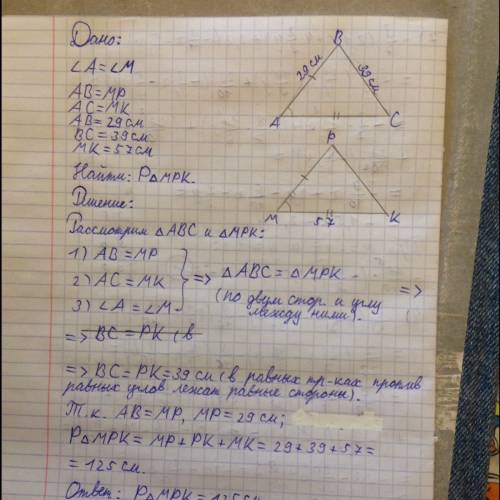 Дано:
∠A=∠M
AB=MP
AC=MK
AB=29см
BC=39см
MK=57см
Найти: P△MPK.
Решение:
Рассмотрим △ABC и △MPK:
1) AB=MP
2) AC=MK
3) ∠A=∠M
=> △ABC=△MPK
(по двум стор. и углу
между ними).
=>
=> BC=PK (в
=> BC=PK=39 см (в равных тр-ках против
равных углов лежат равные стороны).
Т.к. AB=MP, MP=29см;
P△MPK = MP+PK+MK=29+39+57=
= 125 см.
Ответ: P△MPK=125см
B
29см
39см
A
C
P
M
57
K